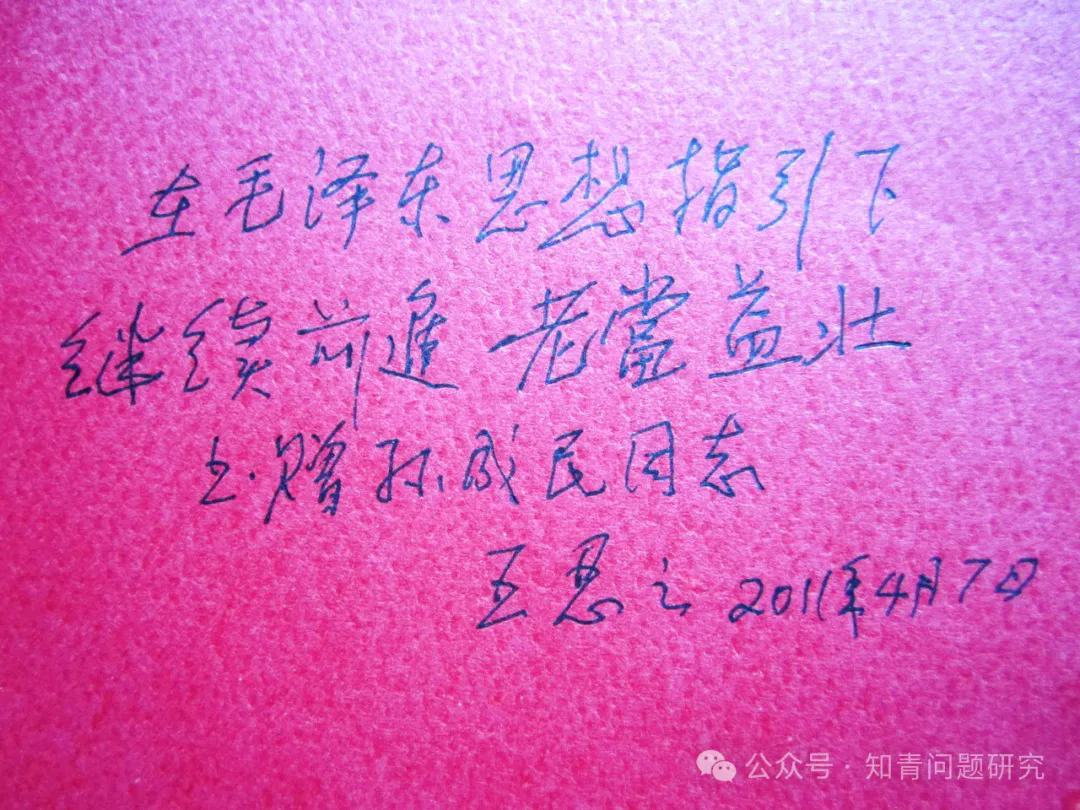 在毛泽东思想指引下
继续前進 老當益壮
上·赠孙成民同志
王思之 2011年4月7日
公众号·知青问题研究